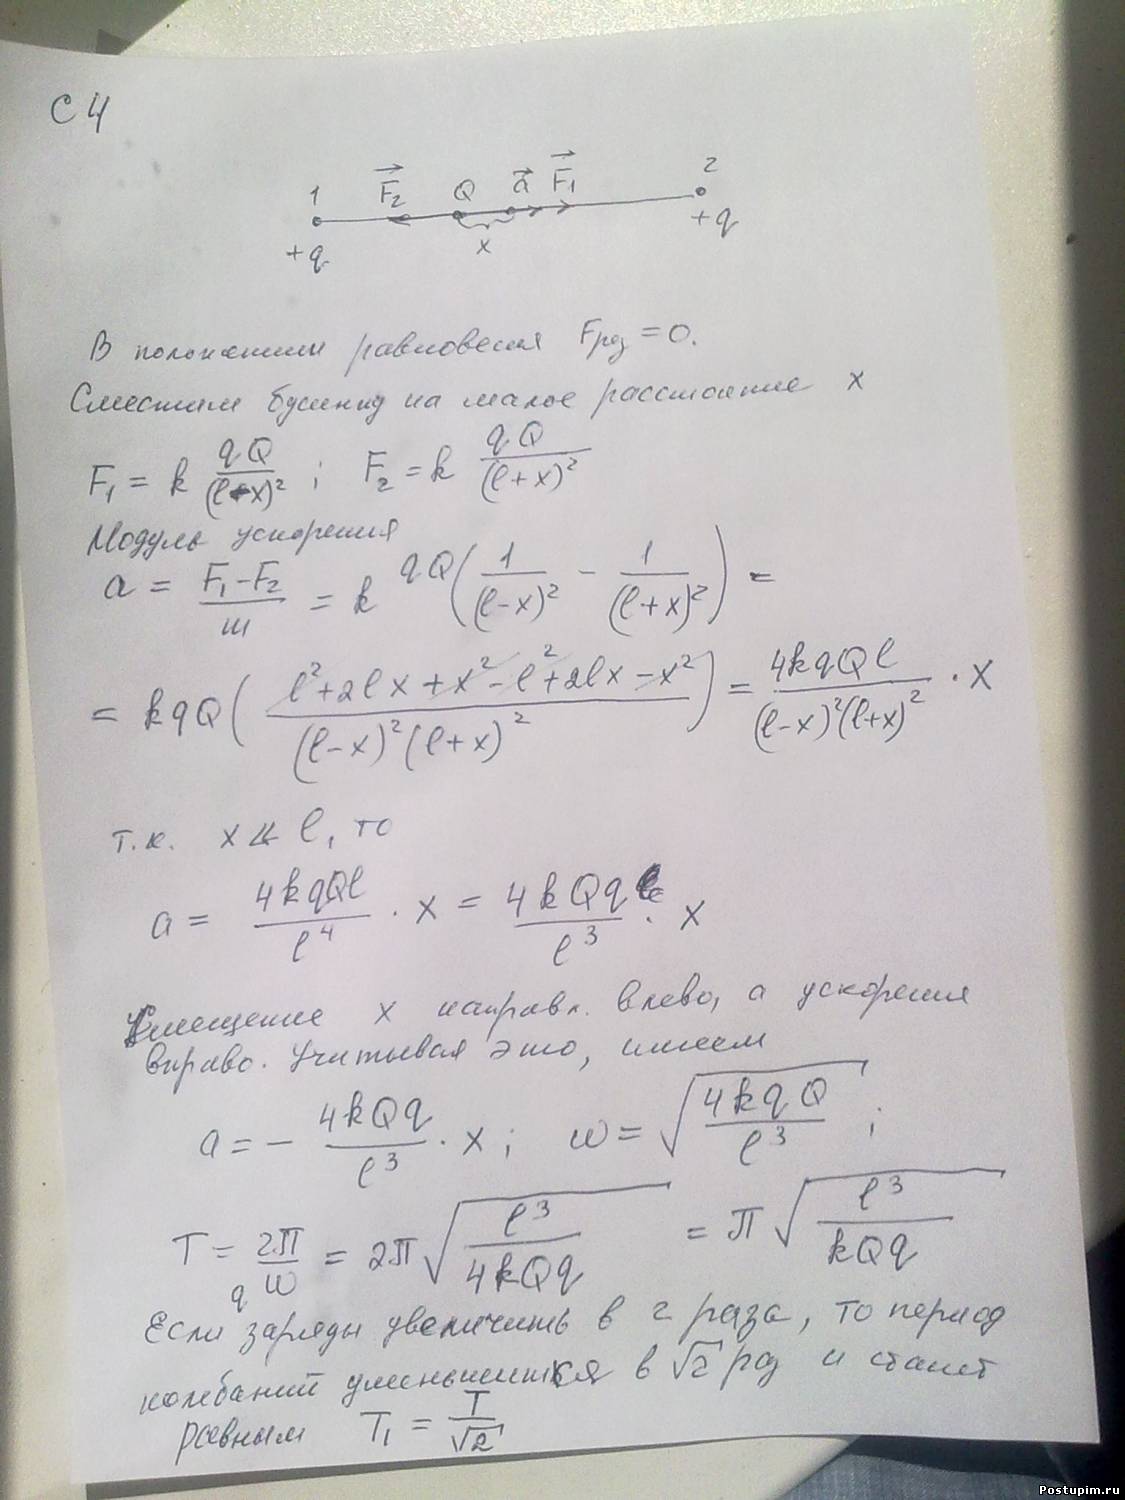 С 4
1 F₂ Q a F₁ 2
+q x +q
В положении равновесия Fрез = 0.
Сместим бусинку на малое расстояние x
F₁ = k qQ/(l-x)² ; F₂ = k qQ/(l+x)²
Модуль ускорения
a = (F₁-F₂)/m = k qQ(1/(l-x)² - 1/(l+x)²) =
= kqQ((l²+2lx+x²-l²+2lx-x²)/((l-x)²(l+x)²)) = 4kqQl/((l-x)²(l+x)²) · x
т.к. x ≪ l, то
a = 4kqQl/l⁴ · x = 4kQq/l³ · x
Смещение x направл. влево, а ускорения
вправо. Учитывая это, имеем
a = - 4kQq/l³ · x ; ω = √(4kqQ/l³) ;
T = 2π/ω = 2π√(l³/4kQq) = π√(l³/kQq)
q
Если заряды увеличить в 2 раза, то период
колбаний уменьшится в √2 раз и станет
равным T₁ = T/√2
Postupim.ru